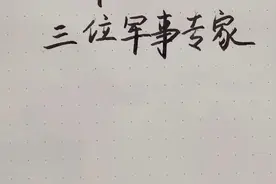 三位军事专家